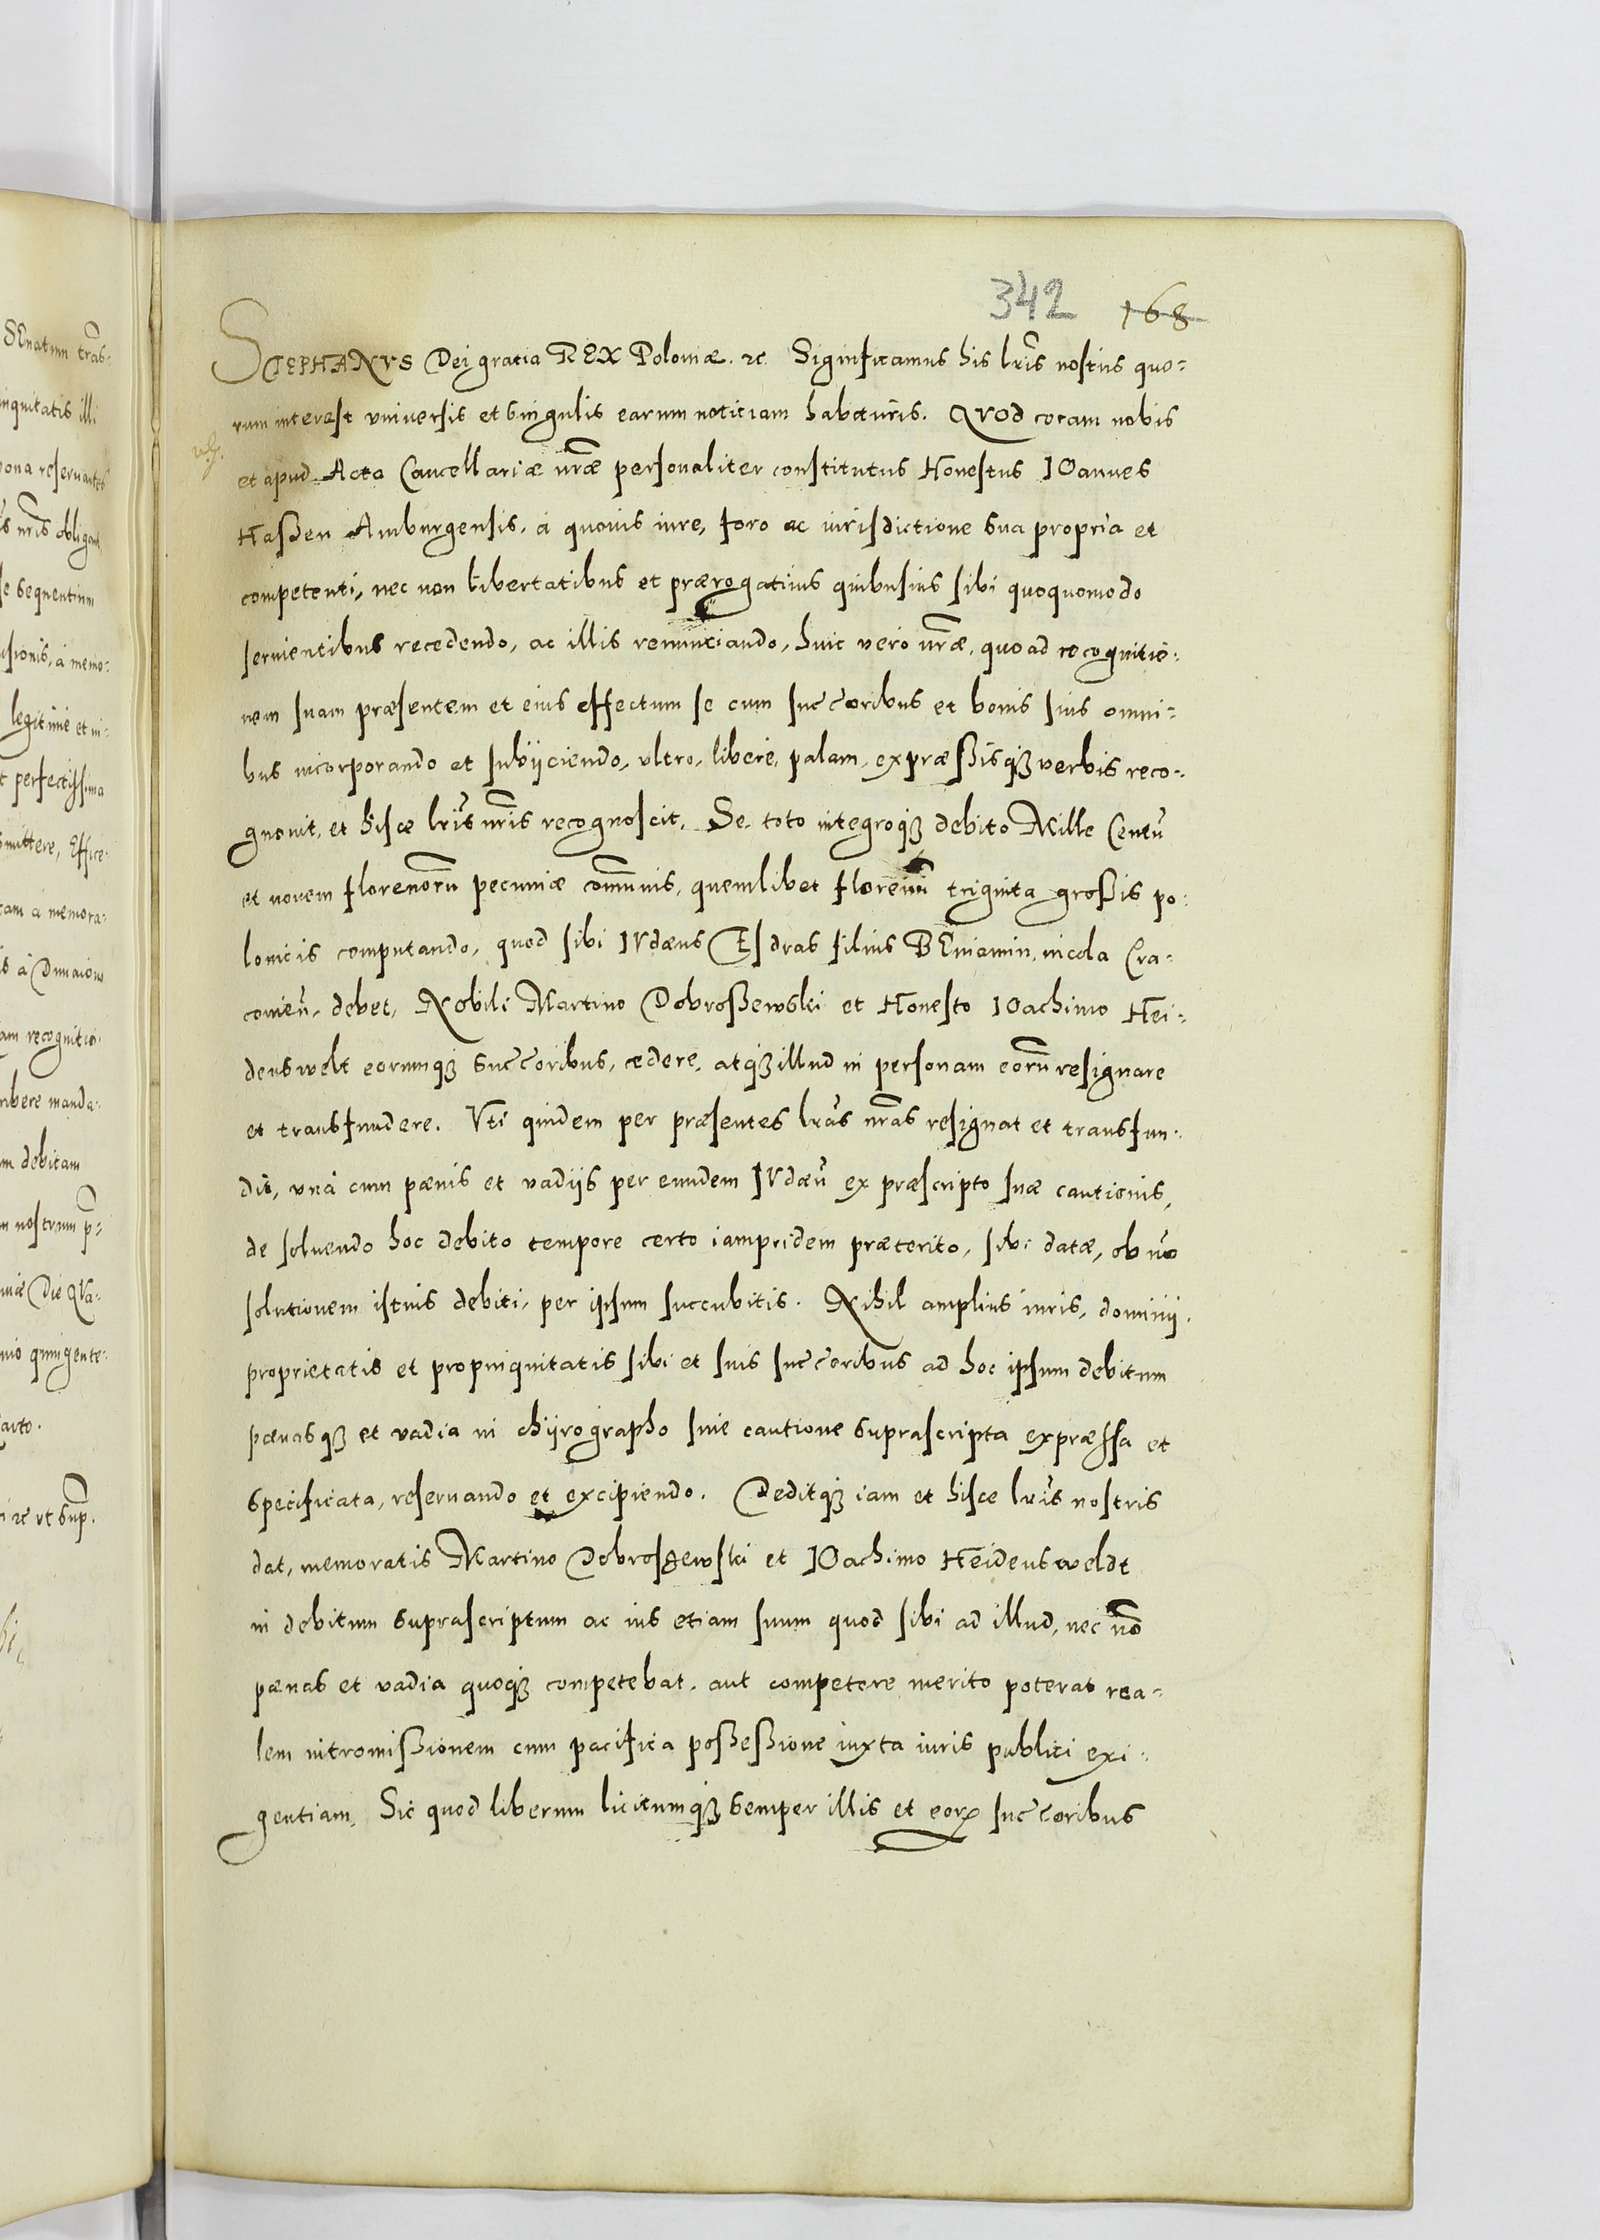 342 168
STEPHANVS Dei gratia REX Poloniæ. ⁊c. Significamus his lrĩs nostris quo-
rum interest vniversis et singulis earum noticiam habituris. QVod coram nobis
et apud Acta Cancellariæ nrã̃e personaliter constitutus Honestus IOannes
Haßen Amburgensis, à quovis iure, foro ac iurisdictione sua propria et
competenti, nec non libertatibus et prærogativis quibusvis sibi quoquomodo
servientibus recedendo, ac illis renunciando, huic vero nrãe, quo ad recognitio-
nem suam præsentem et eius effectum se cum succ̃oribus et bonis suis omni-
bus incorporando et subijciendo, vltro, libere, palam, expræßisqꝫ verbis reco-
gnovit, et hisce lrĩs nrĩs recognoscit, Se, toto integroqꝫ debito Mille Centũ
et novem florenorũ pecuniæ cõmunis, quemlibet florenũ triginta großis po-
lonicis computando, quod sibi IVdæus Esdras filius BEniamin, incola Cra-
covień. debet, Nobili Martino Dobroßewski et Honesto IOachimo Hei-
denswelt eorumqꝫ succ̃oribus, cedere, atqꝫ illud in personam eorũ resignare
et transfundere. Vti quidem per præsentes lrãs nrãs resignat et transfun-
dit, vnà cum pænis et vadijs per eundem IVdæũ ex præscripto suæ cautionis,
de solvendo hoc debito tempore certo iampridem præterito, sibi datæ, ob nõ
solutionem istius debiti, per ipsum succubitis. Nihil amplius iuris, dominij
proprietatis et propinquitatis sibi et suis succ̃oribus ad hoc ipsum debitum
pænasqꝫ et vadia in chijrographo sive cautione suprascripta expræssa et
specificata, reservando et excipiendo. Deditqꝫ iam et hisce lrĩs nostris
dat, memoratis Martino Dobroszewski et IOachimo Heidensweldt
in debitum suprascriptum ac ius etiam suum quod sibi ad illud, nec nõ
pænas et vadia quoqꝫ competebat, aut competere merito poterat rea-
lem intromißionem cum pacifica poßeßione iuxta iuris publici exi-
gentiam. Sic quod liberum licitumqꝫ semper illis et eorꝝ succ̃oribus